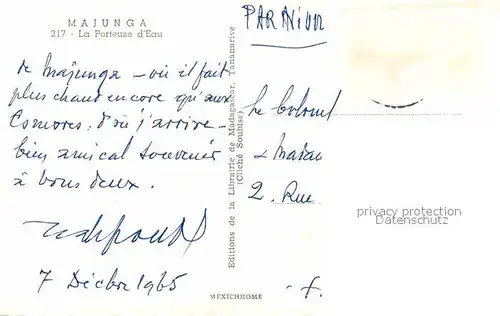 MAJUNGA
217 - La Porteuse d'Eau
de Majunga - où il fait
plus chaud encore qu'aux
Comores, d'où j'arrive -
bien amical souvenir
à vous deux.
7 Décbre 1965
Editions de la Librairie de Madagascar, Tananarive
(Cliché Soubise)
MEXICHROME
PAR AVION
Le Colonel
&
2. Rue
privacy protection
Datenschutz